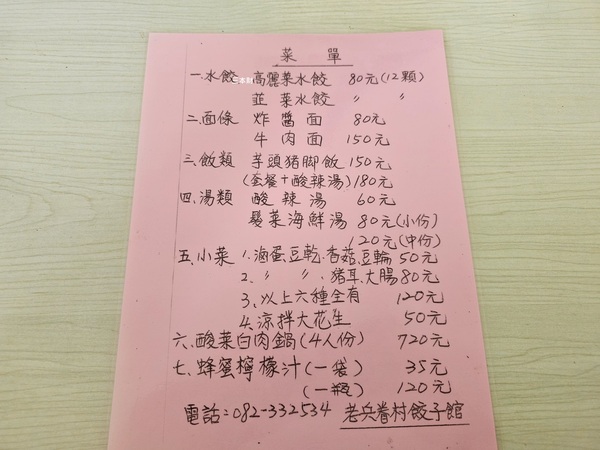 菜 單
一.水餃 高麗菜水餃 80元(12顆)
韮菜水餃 〃 〃
二.面條 炸醬面 80元
牛肉面 150元
三.飯類 芋頭豬脚飯 150元
(套餐+酸辣湯)180元
四.湯類 酸辣湯 60元
髮菜海鮮湯 80元(小份)
120元(中份)
五.小菜 1.滷蛋豆乾.香菇.豆輪 50元
2.〃 〃.豬耳.大腸 80元
3.以上六種全有 120元
4.涼拌大花生 50元
六.酸菜白肉鍋(4人份) 720元
七.蜂蜜檸檬汁(一袋) 35元
(一瓶) 120元
電話:082-332534 老兵眷村餃子館